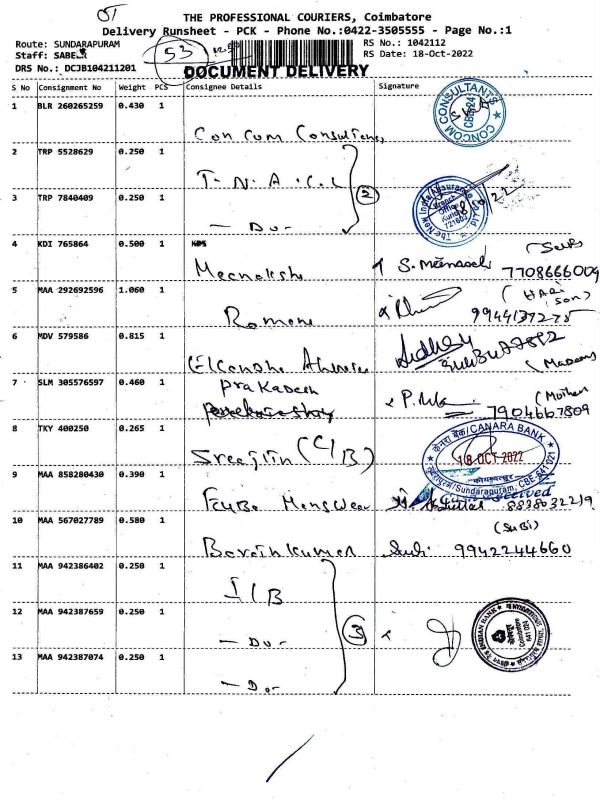 THE PROFESSIONAL COURIERS, Coimbatore
Delivery Runsheet - PCK - Phone No.:0422-3505555 - Page No.:1
Route: SUNDARAPURAM
RS No.: 1042112
Staff: SABEER
53
RS Date: 18-Oct-2022
DRS No.: DCJB104211201
DOCUMENT DELIVERY
S No Consignment No Weight PCS Consignee Details Signature
1 BLR 260265259 0.430 1
CONCOM CONSULTANTS CBE-24
Con Com Consultancy
2 TRP 5528629 0.250 1
T. N. A. C. L
2
The New India Assurance
18/10/22
3 TRP 7840409 0.250 1
- Do -
4 KDI 765864 0.500 1
Meenakshi S. Meenakshi 7708666009
5 MAA 292692596 1.060 1
(Son)
9944137275
6 MDV 579586 0.815 1
7 SLM 305576597 0.460 1
Prakadesh
(Mother)
7904667809
8 TKY 400250 0.265 1
Sreejtin (C/B)
केनरा बैंक/CANARA BANK
18 OCT 2022
Sundarapuram, CBE-641 021
9 MAA 858280430 0.390 1
10 MAA 567027789 0.580 1
(Subi)
9942244660
11 MAA 942386402 0.250 1
I/B
12 MAA 942387659 0.250 1
- Do -
3
INDIAN BANK
13 MAA 942387074 0.250 1
- Do -